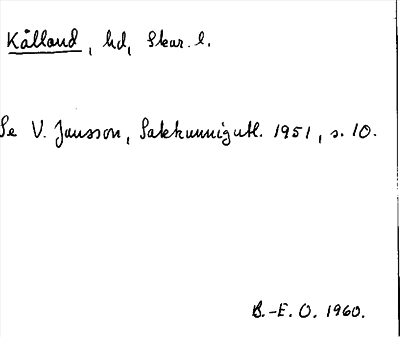 Kålland, hd, Skar. l.
Se V. Jansson, Sakkunnigutl. 1951, s. 10.
B.-E. O. 1960.